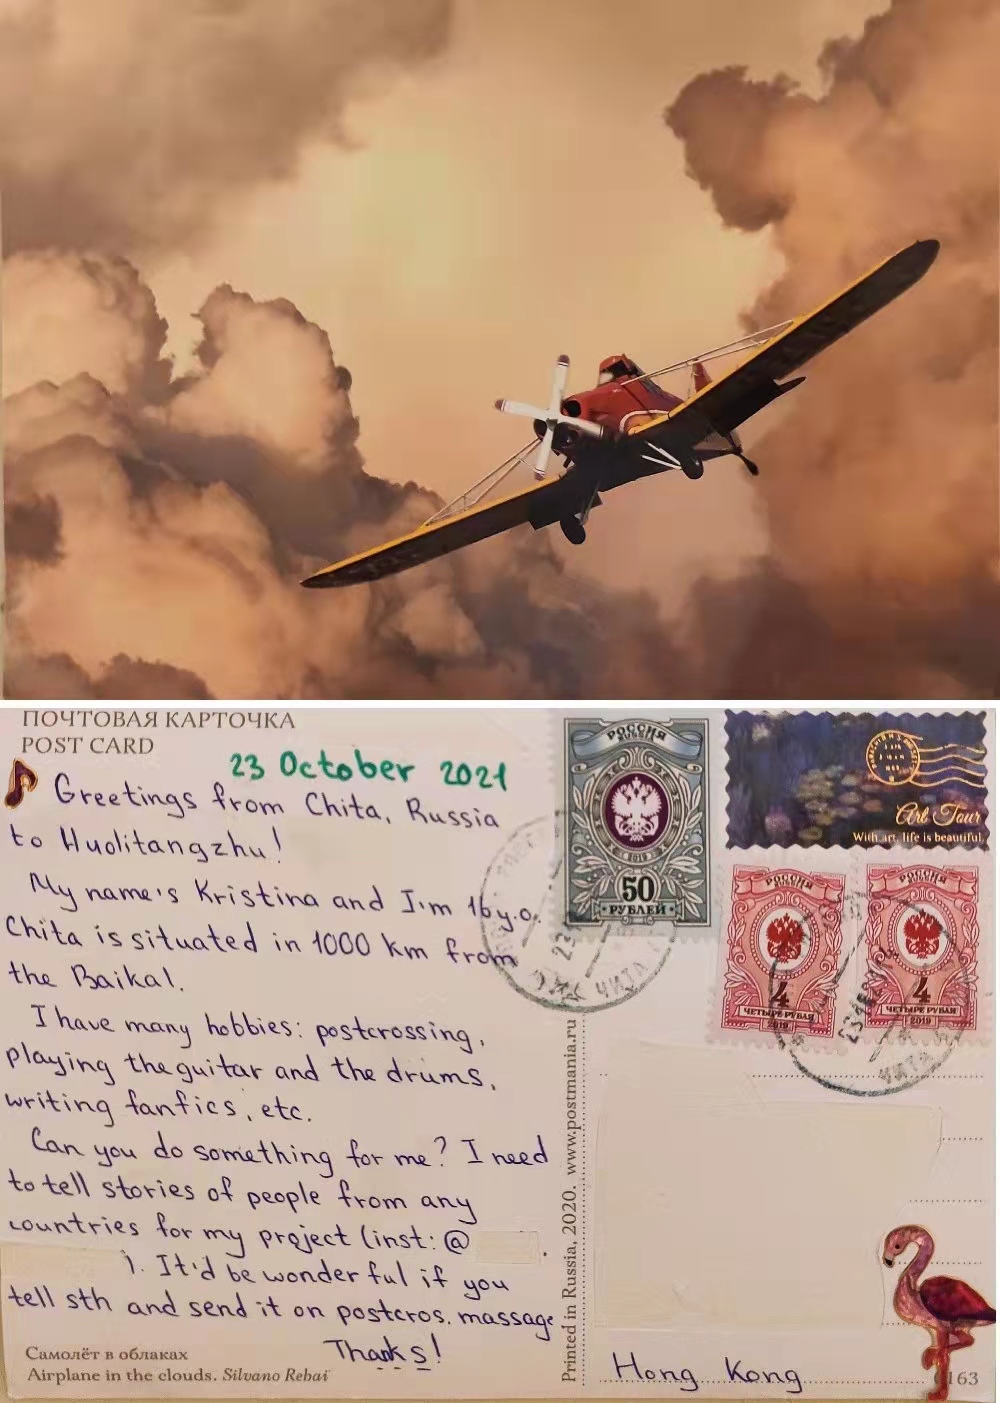 ПОЧТОВАЯ КАРТОЧКА
POST CARD
23 October 2021
Greetings from Chita, Russia
to Huolitangzhu!
My name's Kristina and I'm 16 y.o.
Chita is situated in 1000 km from
the Baikal.
I have many hobbies: postcrossing,
playing the guitar and the drums,
writing fanfics, etc.
Can you do something for me? I need
to tell stories of people from any
countries for my project (inst: @
). It'd be wonderful if you
tell sth and send it on postcros. massage
Thanks!
Самолёт в облаках
Airplane in the clouds. Silvano Rebai
Printed in Russia, 2020. www.postmania.ru
РОССИЯ
ROSSIJA
2019
50
РУБЛЕЙ
Art Tour
With art, life is beautiful.
РОССИЯ
ROSSIJA
4
ЧЕТЫРЕ РУБЛЯ
2019
РОССИЯ
ROSSIJA
4
ЧЕТЫРЕ РУБЛЯ
2019
ЧИТА
ЧИТА
Hong Kong
163